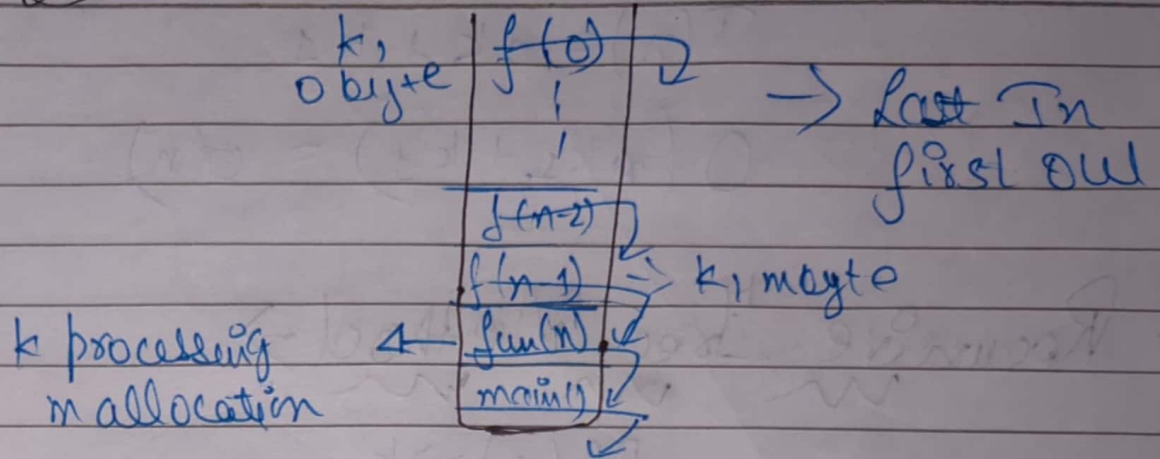 k,
0 byte
f(0)
→ Last In
first out
f(n-2)
f(n-1) → k, mbyte
k processing ← fun(n)
m allocation
main()